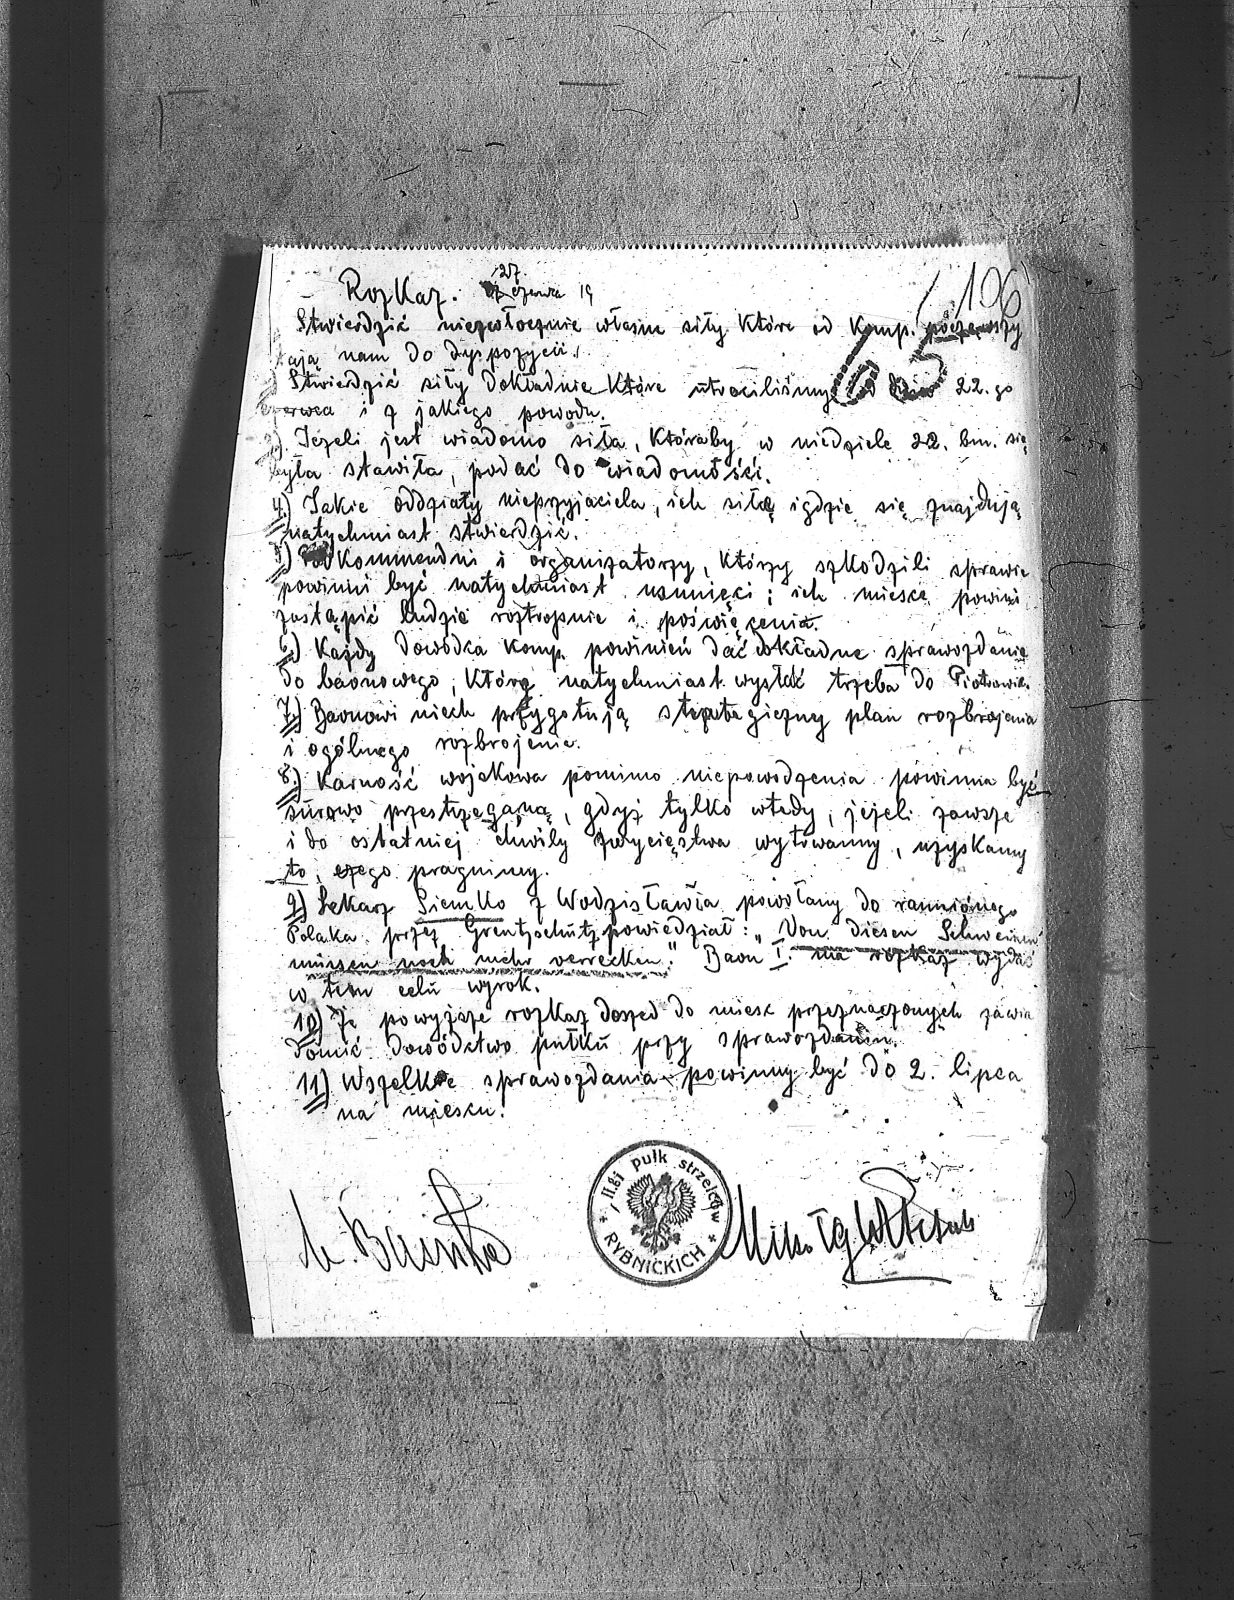 Rozkaz. 27 czerwca 19
106
Stwierdzić niezwłocznie własne siły które od Komp. począwszy
65
ają nam do dyspozycii.
Stwierdzić siły dokładnie które utraciliśmy dnia 22.go
czerwca i z jakiego powodu.
3) Jeżeli jest wiadomo siła, któraby w niedziele 22. bm. się
była stawiła, podać do wiadomości.
4) Jakie oddziały nieprzyjaciela, ich siłę i gdzie się znajdują
natychmiast stwierdzić.
5) Podkommendni i organizatorzy, którzy szkodzili sprawie
powinni być natychmiast usunięci; ich miesce powini
zastąpić ludzie roztropnie i poświęcenia.
6) Każdy dowódca komp. powinień dać dokładne sprawozdanie
do baonowego, którę natychmiast wysłać trzeba do Piotrowic.
7) Baonowi niech przygotują strategiczny plan rozbrojenia
i ogólnego rozbrojenie.
8) Karność wojskowa pomimo niepowodzenia powinna być
surowo przestrzeganą, gdyż tylko wtedy, jeżeli zawsze
i do ostatniej chwily zwycięstwa wytrwamy, uzyskamy
to, czego pragnimy.
9) Lekarz Siemko z Wodzisławia powołany do rannionego
Polaka przez Grentzschutz powiedział: „Von diesen Schweinen
müssen noch mehr verrecken." Baon I. ma rozkaz wydać
w tem celu wyrok.
10) Że powyższe rozkaz doszed do miesc przeznaczonych zawia
domić dowództwo pułku przy sprawozdaniu.
11) Wszelkie sprawozdania powinny być do 2. lipca
na miescu.
II gi pułk strzelców
RYBNICKICH
Mikołaj Witczak